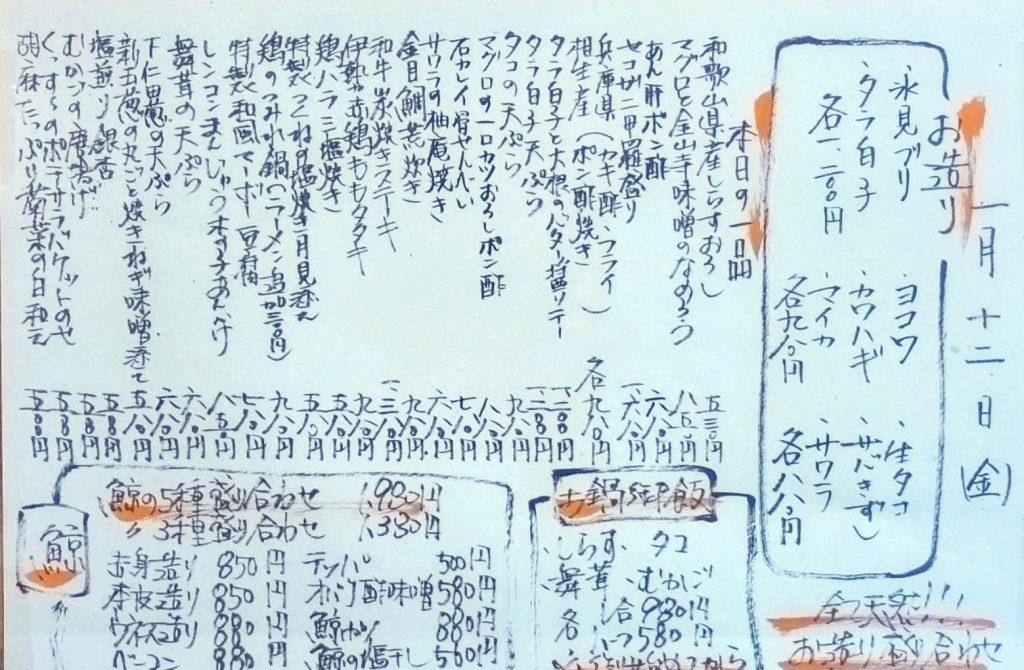 一月十二日(金)
お造り
、氷見ブリ
、タラ白子
各一、二〇〇円
、ヨコワ
、カワハギ
、マイカ
各九八〇円
、生タコ
、サバきずし
、サワラ
各八八〇円
全て天然!!!
お造り盛り合わせ
本日の一品
和歌山県産しらすおろし 五三〇円
マグロと金山寺味噌のなめろう 八五〇円
あん肝ポン酢 六八〇円
セコガニ甲羅盛り 一、六八〇円
兵庫県(カキ酢、フライ
相生産(ポン酢焼き) 各九八〇円
タラ白子と大根のバター醤油ソテー 一、二〇〇円
タラ白子天ぷら 一、二〇〇円
タコの天ぷら 九八〇円
マグロの一口カツおろしポン酢 八八〇円
石カレイ骨せんべい 七八〇円
サワラの柚庵焼き 六八〇円
金目鯛煮炊き 九八〇円
和牛炭焼きステーキ
伊勢赤鶏ももタタキ 九八〇円
鶏ハラミ塩焼き 五八〇円
特製つくねの塩焼き 月見添え
鶏のつみれ鍋(ラーメン追加三〇〇円) 九八〇円
特製和風マーボー豆腐 七八〇円
レンコンまんじゅう 木の子あんかけ 八五〇円
舞茸の天ぷら 六八〇円
下仁田葱の天ぷら 六八〇円
新玉葱の丸ごと焼き ねぎ味噌添え 五八〇円
塩煎り銀杏 五八〇円
むかごの唐揚げ 五八〇円
くっすーのポテサラバケットのせ 五八〇円
胡麻たっぷり菊菜の白和え 五八〇円
お鍋御飯
しらす、タコ
舞茸、むかご
各一合 980円
鯨
鯨の5種盛り合わせ 1,980円
〃 3種盛り合わせ 1,380円
赤身造り 850円
本皮造り 850円
ウネス造り 880円
ベーコン 880円
テッパ 500円
オバケ酢味噌 580円
鯨カツ 880円
鯨の塩干し 560円